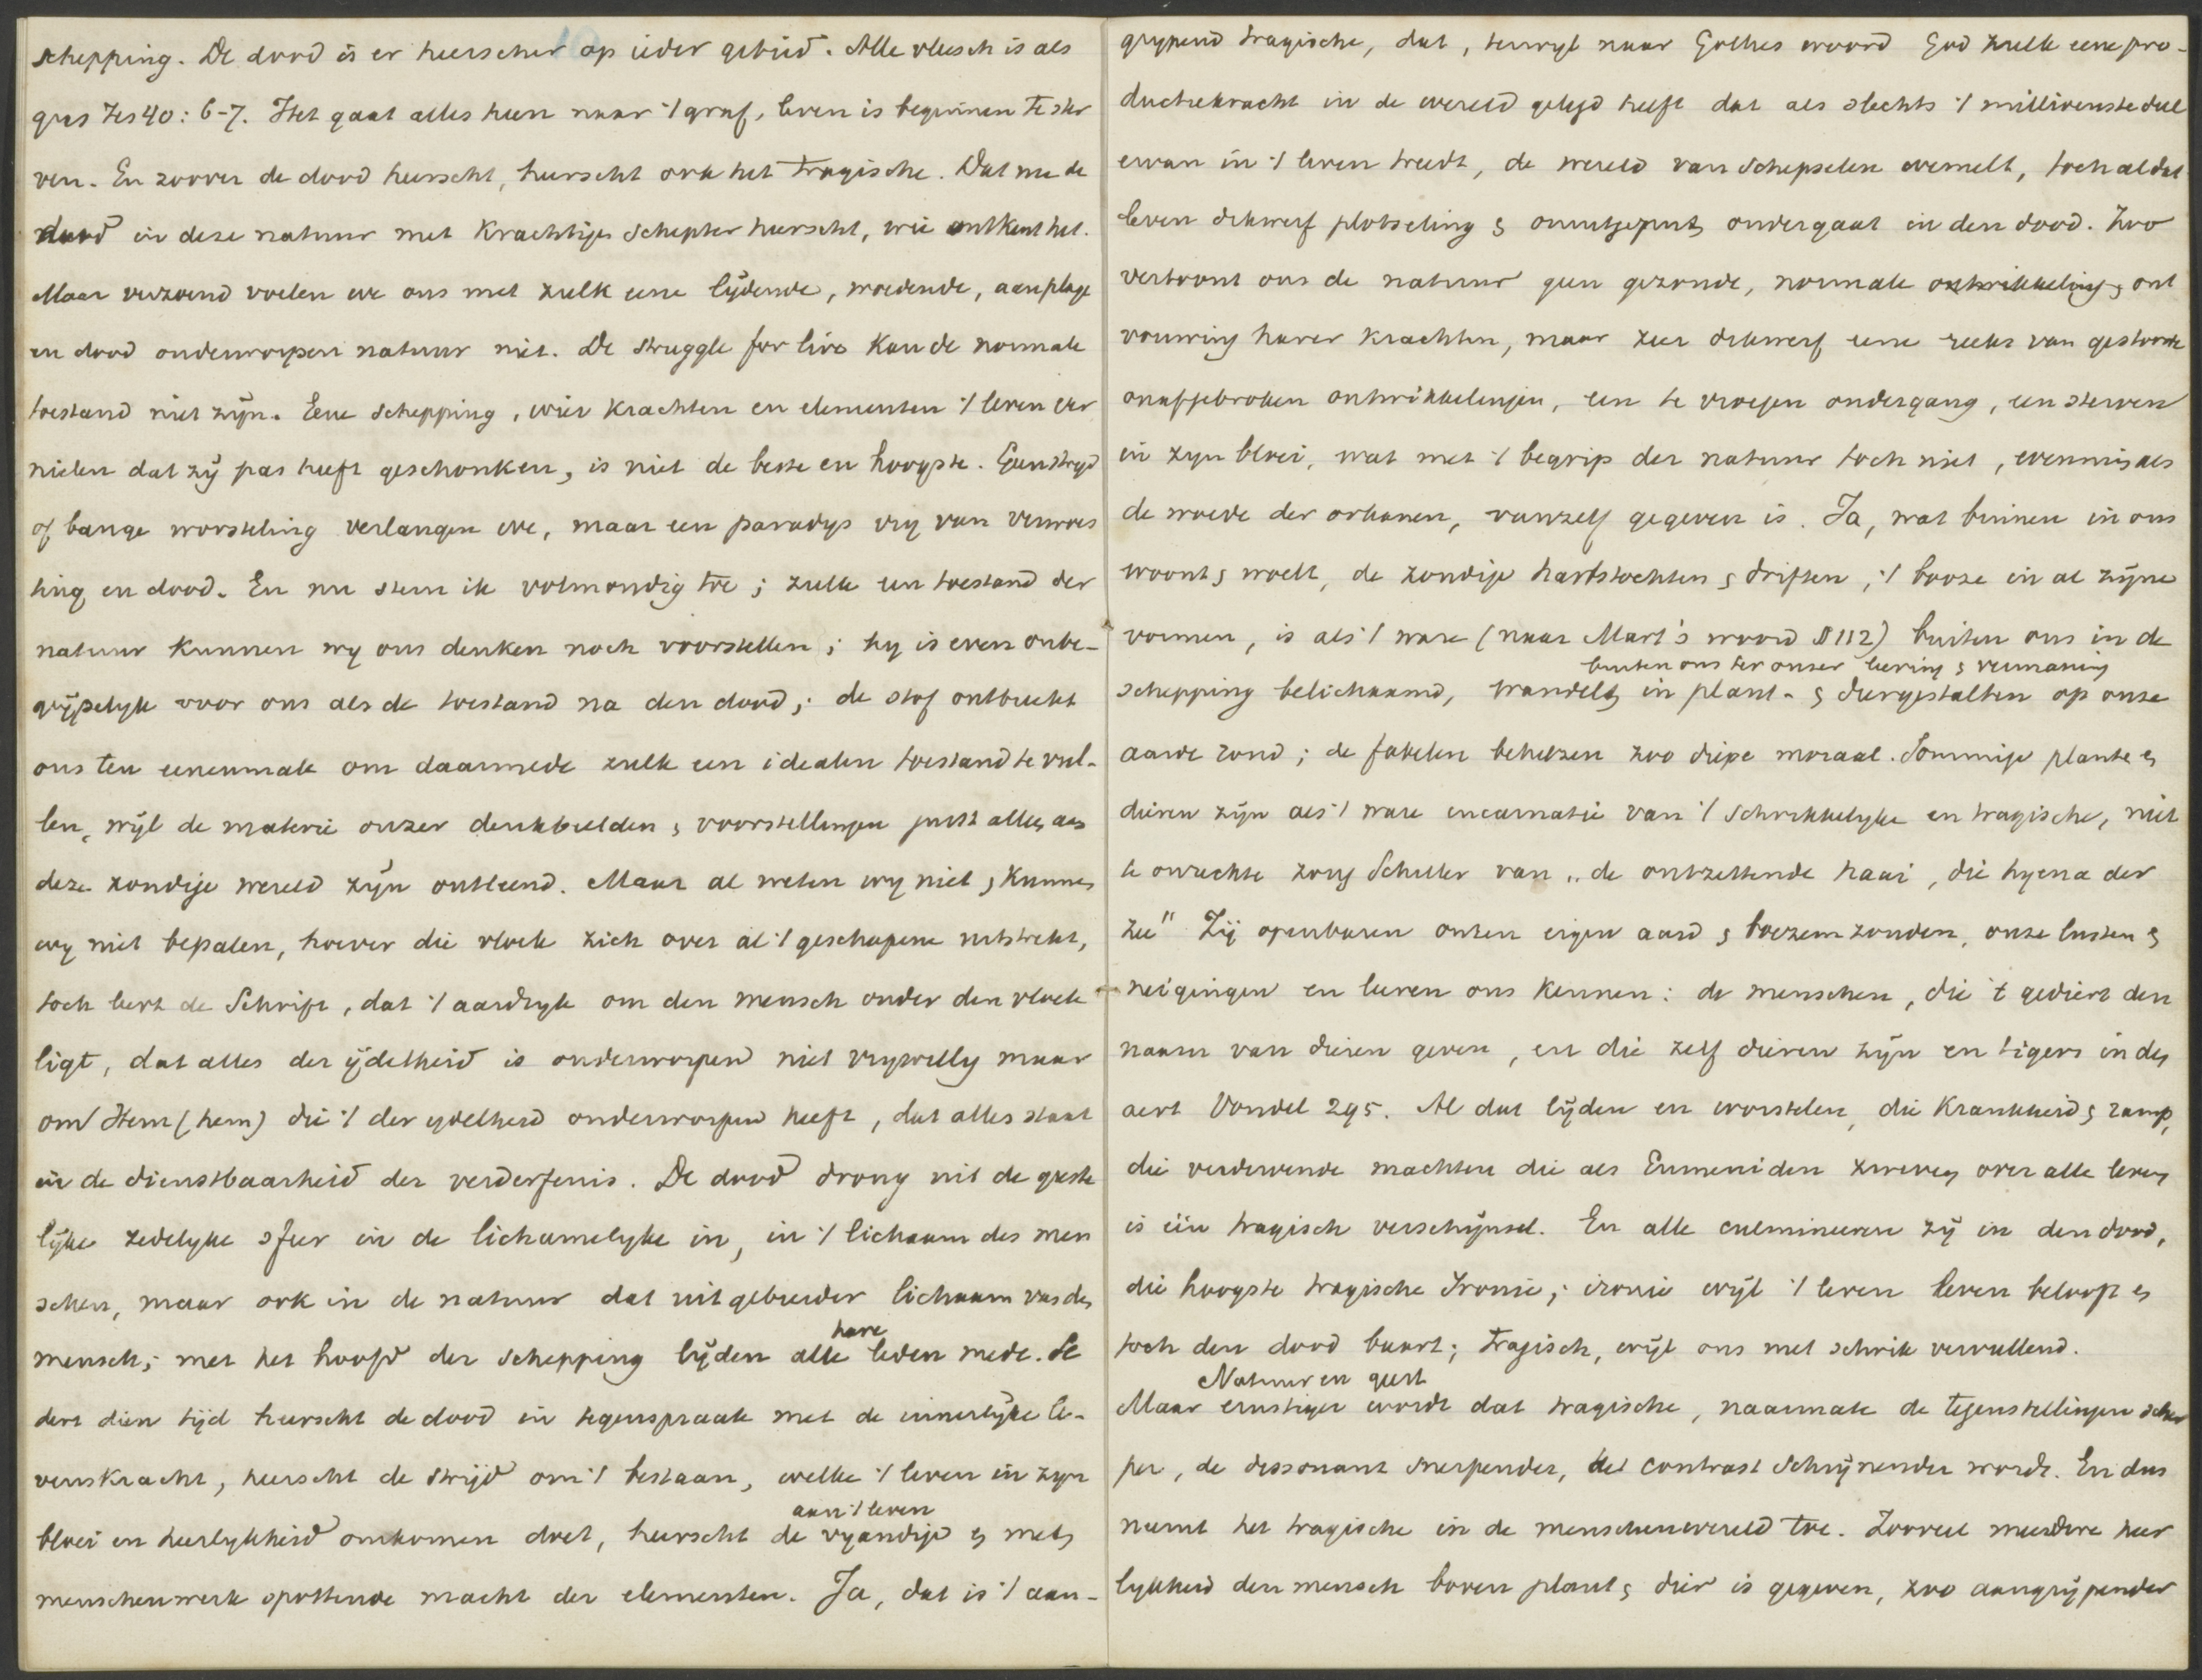 schepping. De dood is er heerscher op ieder gebied. Alle vleesch is als
gras Jes 40: 6-7. Het gaat alles heen naar 't graf, leven is beginnen te ster
ven. En zoover de dood heerscht, heerscht ook het tragische. Dat nu de
dood in deze natuur met krachtigen schepter heerscht, wie ontkent het.
Maar verzoend voelen we ons met zulk eene lijdende, woedende, aan plage
en dood onderworpen natuur niet. De struggle for live kan de normale
toestand niet zijn. Eene schepping, wier krachten en elementen 't leven ver
nielen dat zij pas heeft geschonken, is niet de beste en hoogste. Geen strijd
of bange worsteling verlangen we, maar een paradijs vrij van verwoes
ting en dood. En nu stem ik volmondig toe; zulk een toestand der
natuur kunnen wij ons denken noch voorstellen; hij is even onbe-
grijpelijk voor ons als de toestand na den dood; de stof ontbreekt
ons ten eenenmale om daarmede zulk een idealen toestand te vul-
len, wijl de materie onzer denkbeelden & voorstellingen juist alle aan
deze zondige wereld zijn ontleend. Maar al weten wij niet & kunnen
wij niet bepalen, hoever die vloek zich over al 't geschapene uitstrekt,
toch leert de Schrift, dat 't aardrijk om den mensch onder den vloek
ligt, dat alles der ijdelheid is onderworpen niet vrijwillig maar
om Hem (hem) die 't der ijdelheid onderworpen heeft, dat alles staat
in de dienstbaarheid der verderfenis. De dood drong uit de geeste
lijke zedelijke sfeer in de lichamelijke in, in 't lichaam des men
schen, maar ook in de natuur dat uitgebreider lichaam van den
mensch; met het hoofd der schepping lijden alle hare leden mede. Se
dert dien tijd heerscht de dood in tegenspraak met de innerlijke le-
venskracht, heerscht de strijd om 't bestaan, welke 't leven in zijn
bloei en heerlijkheid omkomen doet, heerscht de aan 't leven vijandige & met
menschenwerk spottende macht der elementen. Ja, dat is 't aan-
grijpend tragische, dat, terwijl naar Göthes woord God zulk eene pro-
ductiekracht in de wereld gelegd heeft dat als slechts 't millioenste deel
ervan in 't leven treedt, de wereld van schepselen wemelt, toch al dat
leven dikwerf plotseling & onuitgeput ondergaat in den dood. Zoo
vertoont ons de natuur geen gezonde, normale ontwikkeling & ont
vouwing harer krachten, maar zeer dikwerf eene reeks van gestoorde
onafgebroken ontwikkelingen, een te vroegen ondergang, een sterven
in zijn bloei, wat met 't begrip der natuur toch niet, evenmin als
de woede der orkanen, vanzelf gegeven is. Ja, wat binnen in ons
woont & woelt, de zondige hartstochten & driften, 't booze in al zijne
vormen, is als 't ware (naar Mart's woord § 112) buiten ons in de
buiten ons ter onzer leering & vermaning
schepping belichaamd, wandelt in plant- & diergestalten op onze
aarde rond; de fabelen behelzen zoo diepe moraal. Sommige planten &
dieren zijn als 't ware incarnatie van 't schrikkelijke en tragische, niet
te onrechte zong Schiller van „de ontzettende haai, die hyena der
zee" Zij openbaren onzen eigen aard & boezemzonden, onze lusten &
neigingen en leeren ons kennen: de menschen, die 't gediert den
naam van dieren geven, en die zelf dieren zijn en tigers in den
aert Vondel 295. Al dat lijden en worstelen, die krankheid & ramp,
die verdervende machten die als Eumeniden zweven over alle leven
is één tragisch verschijnsel. En alle culmineeren zij in den dood,
die hoogste tragische Ironie; ironie wijl 't leven leven belooft en
toch den dood baart; tragisch, wijl ons met schrik vervullend.
Natuur en geest
Maar ernstiger wordt dat tragische, naarmate de tegenstellingen scher
per, de dissonant snerpender, het contrast schrijnender wordt. En dus
neemt het tragische in de menschenwereld toe. Zooveel meerdere heer
lijkheid den mensch boven plant & dier is gegeven, zoo aangrijpender